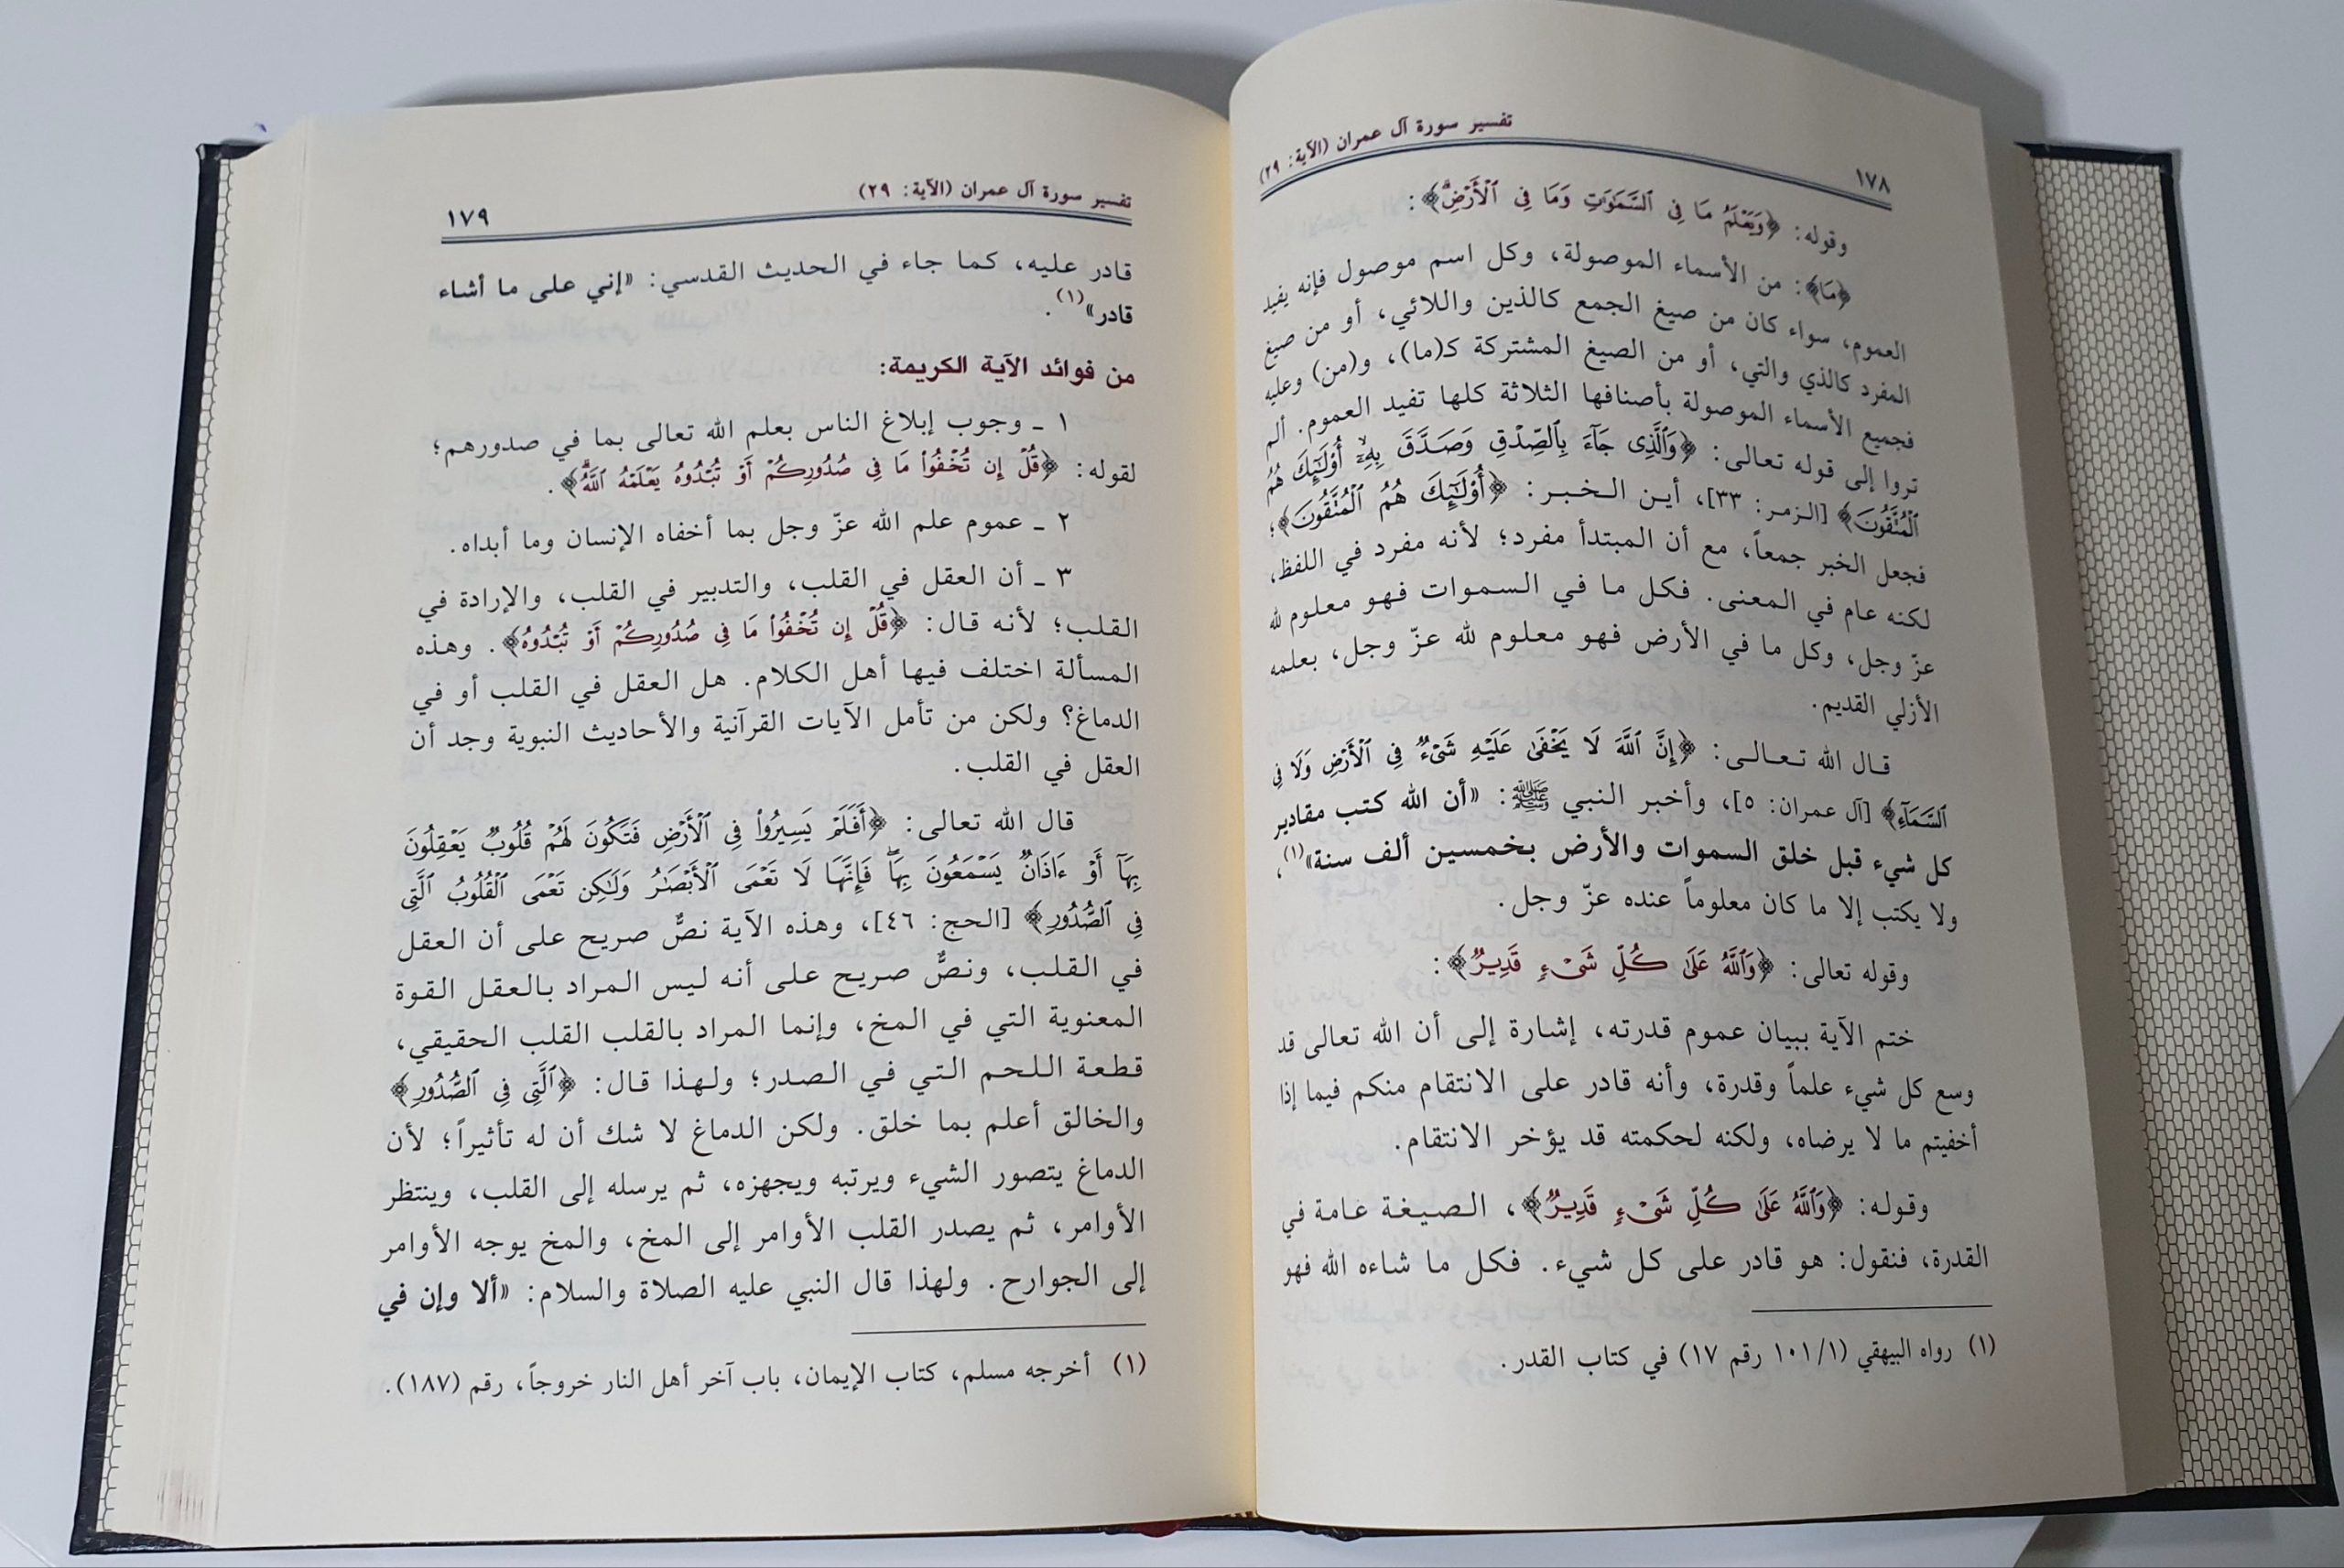 ١٧٨
تفسير سورة آل عمران (الآية: ٢٩)
وقوله: ﴿وَيَعْلَمُ مَا فِي السَّمَوَاتِ وَمَا فِي الْأَرْضِ﴾:
﴿مَا﴾: من الأسماء الموصولة، وكل اسم موصول فإنه يفيد
العموم، سواء كان من صيغ الجمع كالذين واللائي، أو من صيغ
المفرد كالذي والتي، أو من الصيغ المشتركة كـ(ما)، و(من) وعليه
فجميع الأسماء الموصولة بأصنافها الثلاثة كلها تفيد العموم. ألم
تروا إلى قوله تعالى: ﴿وَالَّذِي جَاءَ بِالصِّدْقِ وَصَدَّقَ بِهِ أُوْلَئِكَ هُمُ
الْمُتَّقُونَ﴾ [الزمر: ٣٣]، أين الخبر: ﴿أُوْلَئِكَ هُمُ الْمُتَّقُونَ﴾؛
فجعل الخبر جمعاً، مع أن المبتدأ مفرد؛ لأنه مفرد في اللفظ،
لكنه عام في المعنى. فكل ما في السموات فهو معلوم لله
عزّ وجل، وكل ما في الأرض فهو معلوم لله عزّ وجل، بعلمه
الأزلي القديم.
قال الله تعالى: ﴿إِنَّ اللَّهَ لَا يَخْفَى عَلَيْهِ شَيْءٌ فِي الْأَرْضِ وَلَا فِي
السَّمَاءِ﴾ [آل عمران: ٥]، وأخبر النبي ﷺ: «أن الله كتب مقادير
كل شيء قبل خلق السموات والأرض بخمسين ألف سنة»(١)،
ولا يكتب إلا ما كان معلوماً عنده عزّ وجل.
وقوله تعالى: ﴿وَاللَّهُ عَلَى كُلِّ شَيْءٍ قَدِيرٌ﴾:
ختم الآية ببيان عموم قدرته، إشارة إلى أن الله تعالى قد
وسع كل شيء علماً وقدرة، وأنه قادر على الانتقام منكم فيما إذا
أخفيتم ما لا يرضاه، ولكنه لحكمته قد يؤخر الانتقام.
وقوله: ﴿وَاللَّهُ عَلَى كُلِّ شَيْءٍ قَدِيرٌ﴾، الصيغة عامة في
القدرة، فنقول: هو قادر على كل شيء. فكل ما شاءه الله فهو
(١) رواه البيهقي (١/ ١٠١ رقم ١٧) في كتاب القدر.
تفسير سورة آل عمران (الآية: ٢٩)
١٧٩
قادر عليه، كما جاء في الحديث القدسي: «إني على ما أشاء
قادر»(١).
من فوائد الآية الكريمة:
١ ـ وجوب إبلاغ الناس بعلم الله تعالى بما في صدورهم؛
لقوله: ﴿قُلْ إِن تُخْفُوا مَا فِي صُدُورِكُمْ أَوْ تُبْدُوهُ يَعْلَمْهُ اللَّهُ﴾.
٢ ـ عموم علم الله عزّ وجل بما أخفاه الإنسان وما أبداه.
٣ ـ أن العقل في القلب، والتدبير في القلب، والإرادة في
القلب؛ لأنه قال: ﴿قُلْ إِن تُخْفُوا مَا فِي صُدُورِكُمْ أَوْ تُبْدُوهُ﴾. وهذه
المسألة اختلف فيها أهل الكلام. هل العقل في القلب أو في
الدماغ؟ ولكن من تأمل الآيات القرآنية والأحاديث النبوية وجد أن
العقل في القلب.
قال الله تعالى: ﴿أَفَلَمْ يَسِيرُوا فِي الْأَرْضِ فَتَكُونَ لَهُمْ قُلُوبٌ يَعْقِلُونَ
بِهَا أَوْ ءَاذَانٌ يَسْمَعُونَ بِهَا فَإِنَّهَا لَا تَعْمَى الْأَبْصَارُ وَلَكِن تَعْمَى الْقُلُوبُ الَّتِي
فِي الصُّدُورِ﴾ [الحج: ٤٦]، وهذه الآية نصٌّ صريح على أن العقل
في القلب، ونصٌّ صريح على أنه ليس المراد بالعقل القوة
المعنوية التي في المخ، وإنما المراد بالقلب القلب الحقيقي،
قطعة اللحم التي في الصدر؛ ولهذا قال: ﴿الَّتِي فِي الصُّدُورِ﴾
والخالق أعلم بما خلق. ولكن الدماغ لا شك أن له تأثيراً؛ لأن
الدماغ يتصور الشيء ويرتبه ويجهزه، ثم يرسله إلى القلب، وينتظر
الأوامر، ثم يصدر القلب الأوامر إلى المخ، والمخ يوجه الأوامر
إلى الجوارح. ولهذا قال النبي عليه الصلاة والسلام: «ألا وإن في
(١) أخرجه مسلم، كتاب الإيمان، باب آخر أهل النار خروجاً، رقم (١٨٧).